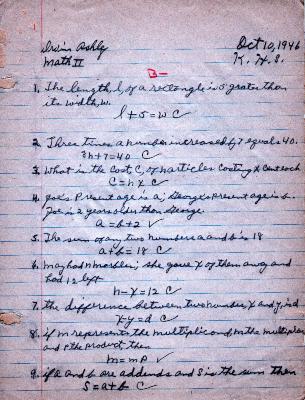 Irvin Ashly
Oct 10, 1946
Math II
K. H. S.
B-
1. The length, l, of a rectangle is 5 greater than
its width, w.
l + 5 = w C
2. Three times a number increased by 7 equals 40.
3n + 7 = 40 C
3. What is the cost, C, of n articles costing x cent each
C = n x C
4. Joe's Present age is a; George's present age is b.
Joe is 2 years older than George.
a = b + 2 ✓
5. The sum of any two numbers a and b is 18
a + b = 18 C
6. may had n marbles; she gave x of them away and
had 12 left
n - x = 12 C
7. the difference between two numbers, x and y, is d
x - y = d C
8. if m represents the multiplicand, m the multiplier
and P the product, then
m = mP ✓
9. if a and b are addends and S is the sum then
S = a + b C